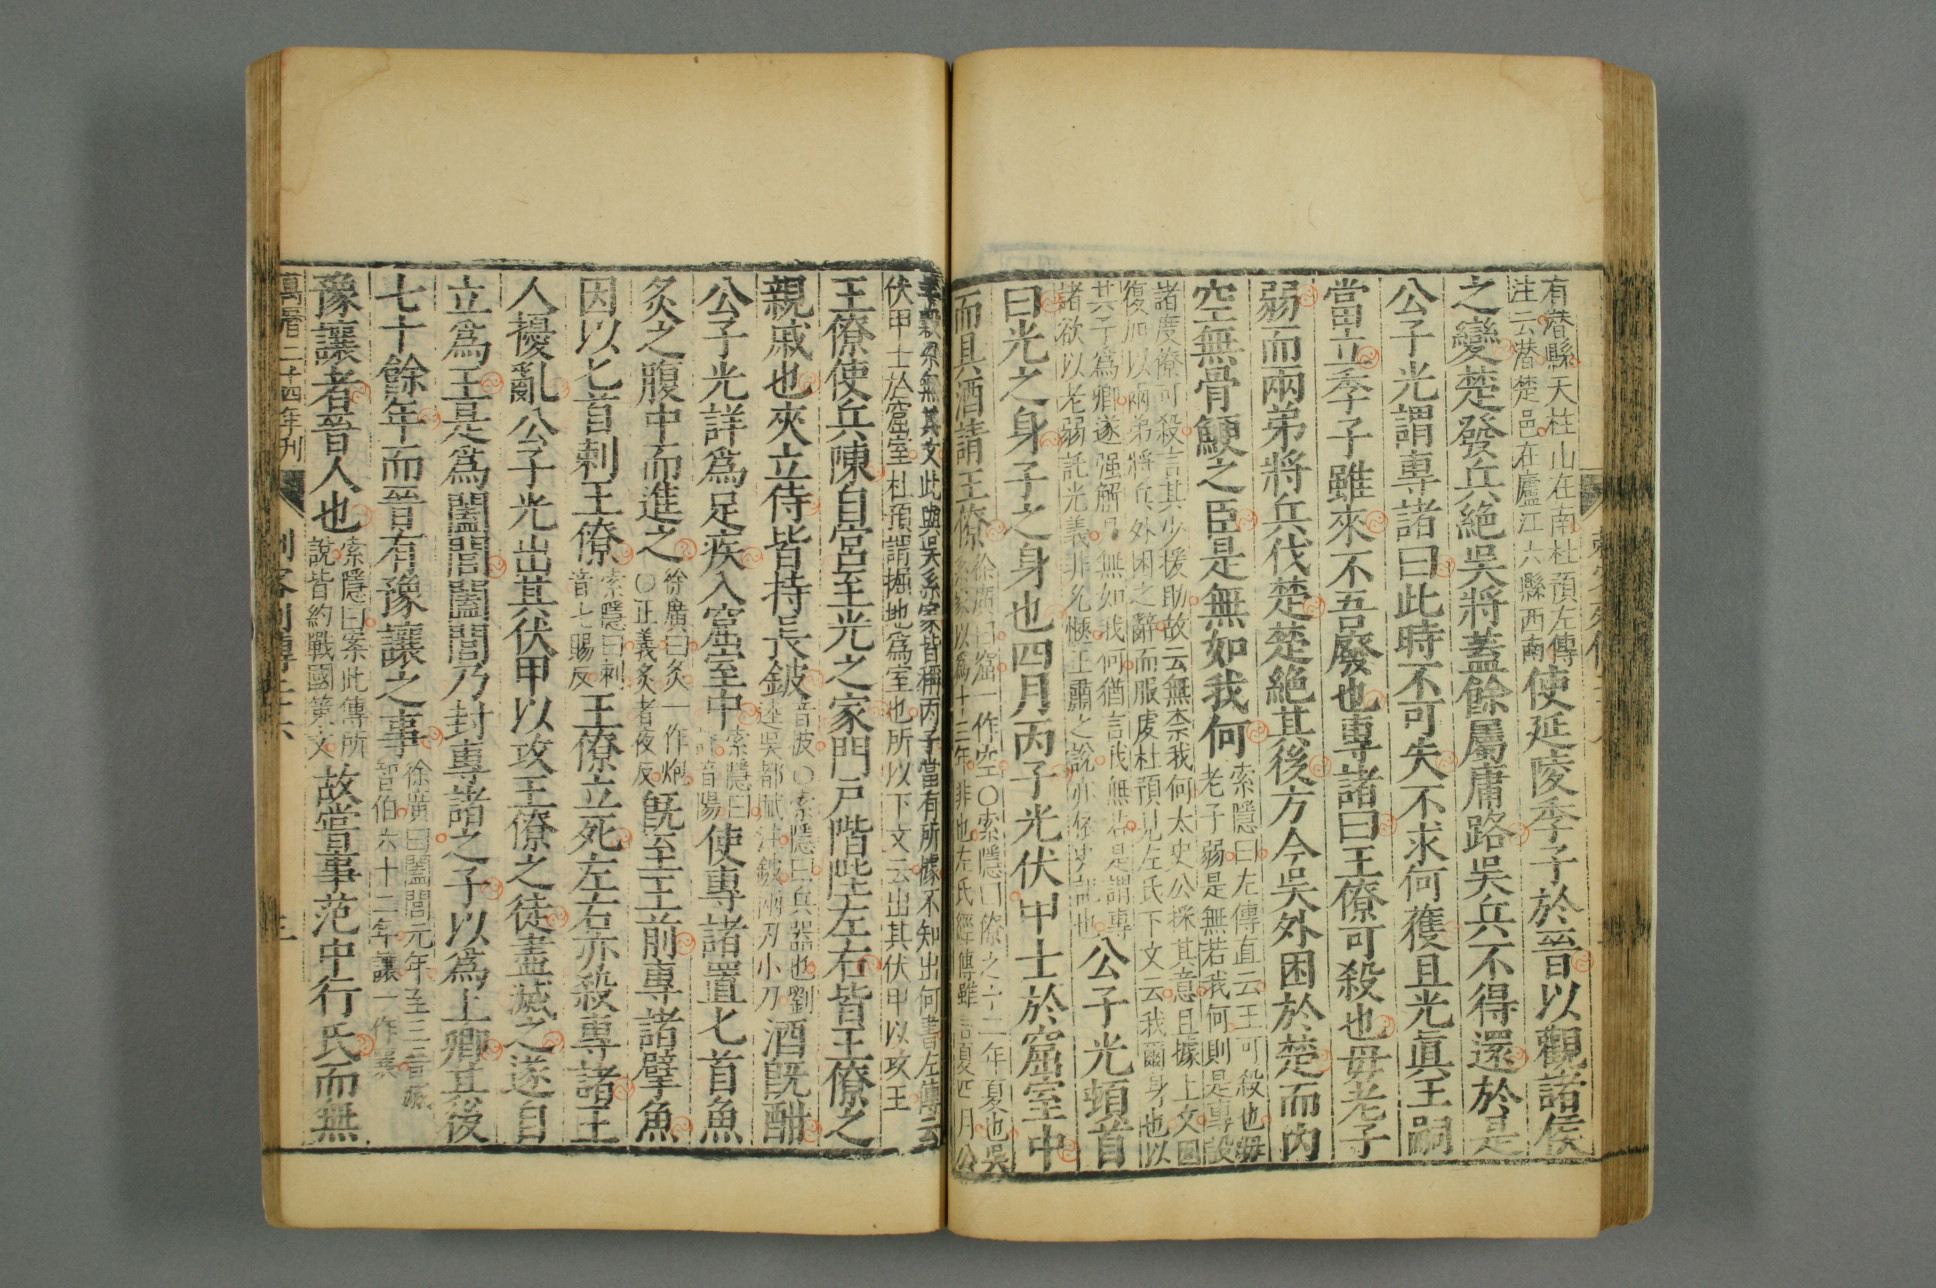 有潜縣天柱山在南杜預左傳
注云潜楚邑在廬江六縣西南
使延陵季子於晉以觀諸侯
之變楚發兵絕吳將蓋餘屬庸路吳兵不得還於是
公子光謂專諸曰此時不可失不求何獲且光眞王嗣
當立季子雖來不吾廢也專諸曰王僚可殺也毋老子
弱而兩弟將兵伐楚楚絕其後方今吳外困於楚而內
空無骨鯁之臣是無如我何
索隱曰左傳直云王可殺也毋
老子弱是無若我何則是專設
諸度僚可殺言其少援助故云無柰我何太史公採其意且據上文因
復加以兩弟將兵外困之辭而服虔杜預見左氏下文云我爾身也以
其子爲卿遂强解是無如我何猶言我無若是謂專
諸欲以老弱託光義非允愜王肅之說亦依史記也
公子光頓首
曰光之身子之身也四月丙子光伏甲士於窟室中
而具酒請王僚
徐廣曰窟一作空○索隱曰僚之十二年夏也吳
系家以爲十三年非也左氏經傳雖言夏四月公
羊穀梁無其文此與吳系家皆稱丙子當有所據不知出何書左傳云
伏甲士於窟室杜預謂掘地爲室也所以下文云出其伏甲以攻王
王僚使兵陳自宮至光之家門戶階陛左右皆王僚之
親戚也夾立侍皆持長鈹
音波○索隱曰兵器也劉
逵吳都賦注鈹兩刃小刀
酒旣酣
公子光詳爲足疾入窟室中
索隱曰
詳音陽
使專諸置匕首魚
炙之腹中而進之
徐廣曰炙一作炮
○正義炙者夜反
旣至王前專諸擘魚
因以匕首刺王僚
索隱曰刺
音七賜反
王僚立死左右亦殺專諸王
人擾亂公子光出其伏甲以攻王僚之徒盡滅之遂自
立爲王是爲闔閭闔閭乃封專諸之子以爲上卿其後
七十餘年而晉有豫讓之事
徐廣曰闔閭元年至三晉滅
智伯六十二年讓一作襄
豫讓者晉人也
索隱曰案此傳所
說皆約戰國策文
故嘗事范中行氏而無
萬曆二十四年刊
刺客列傳二十六
三